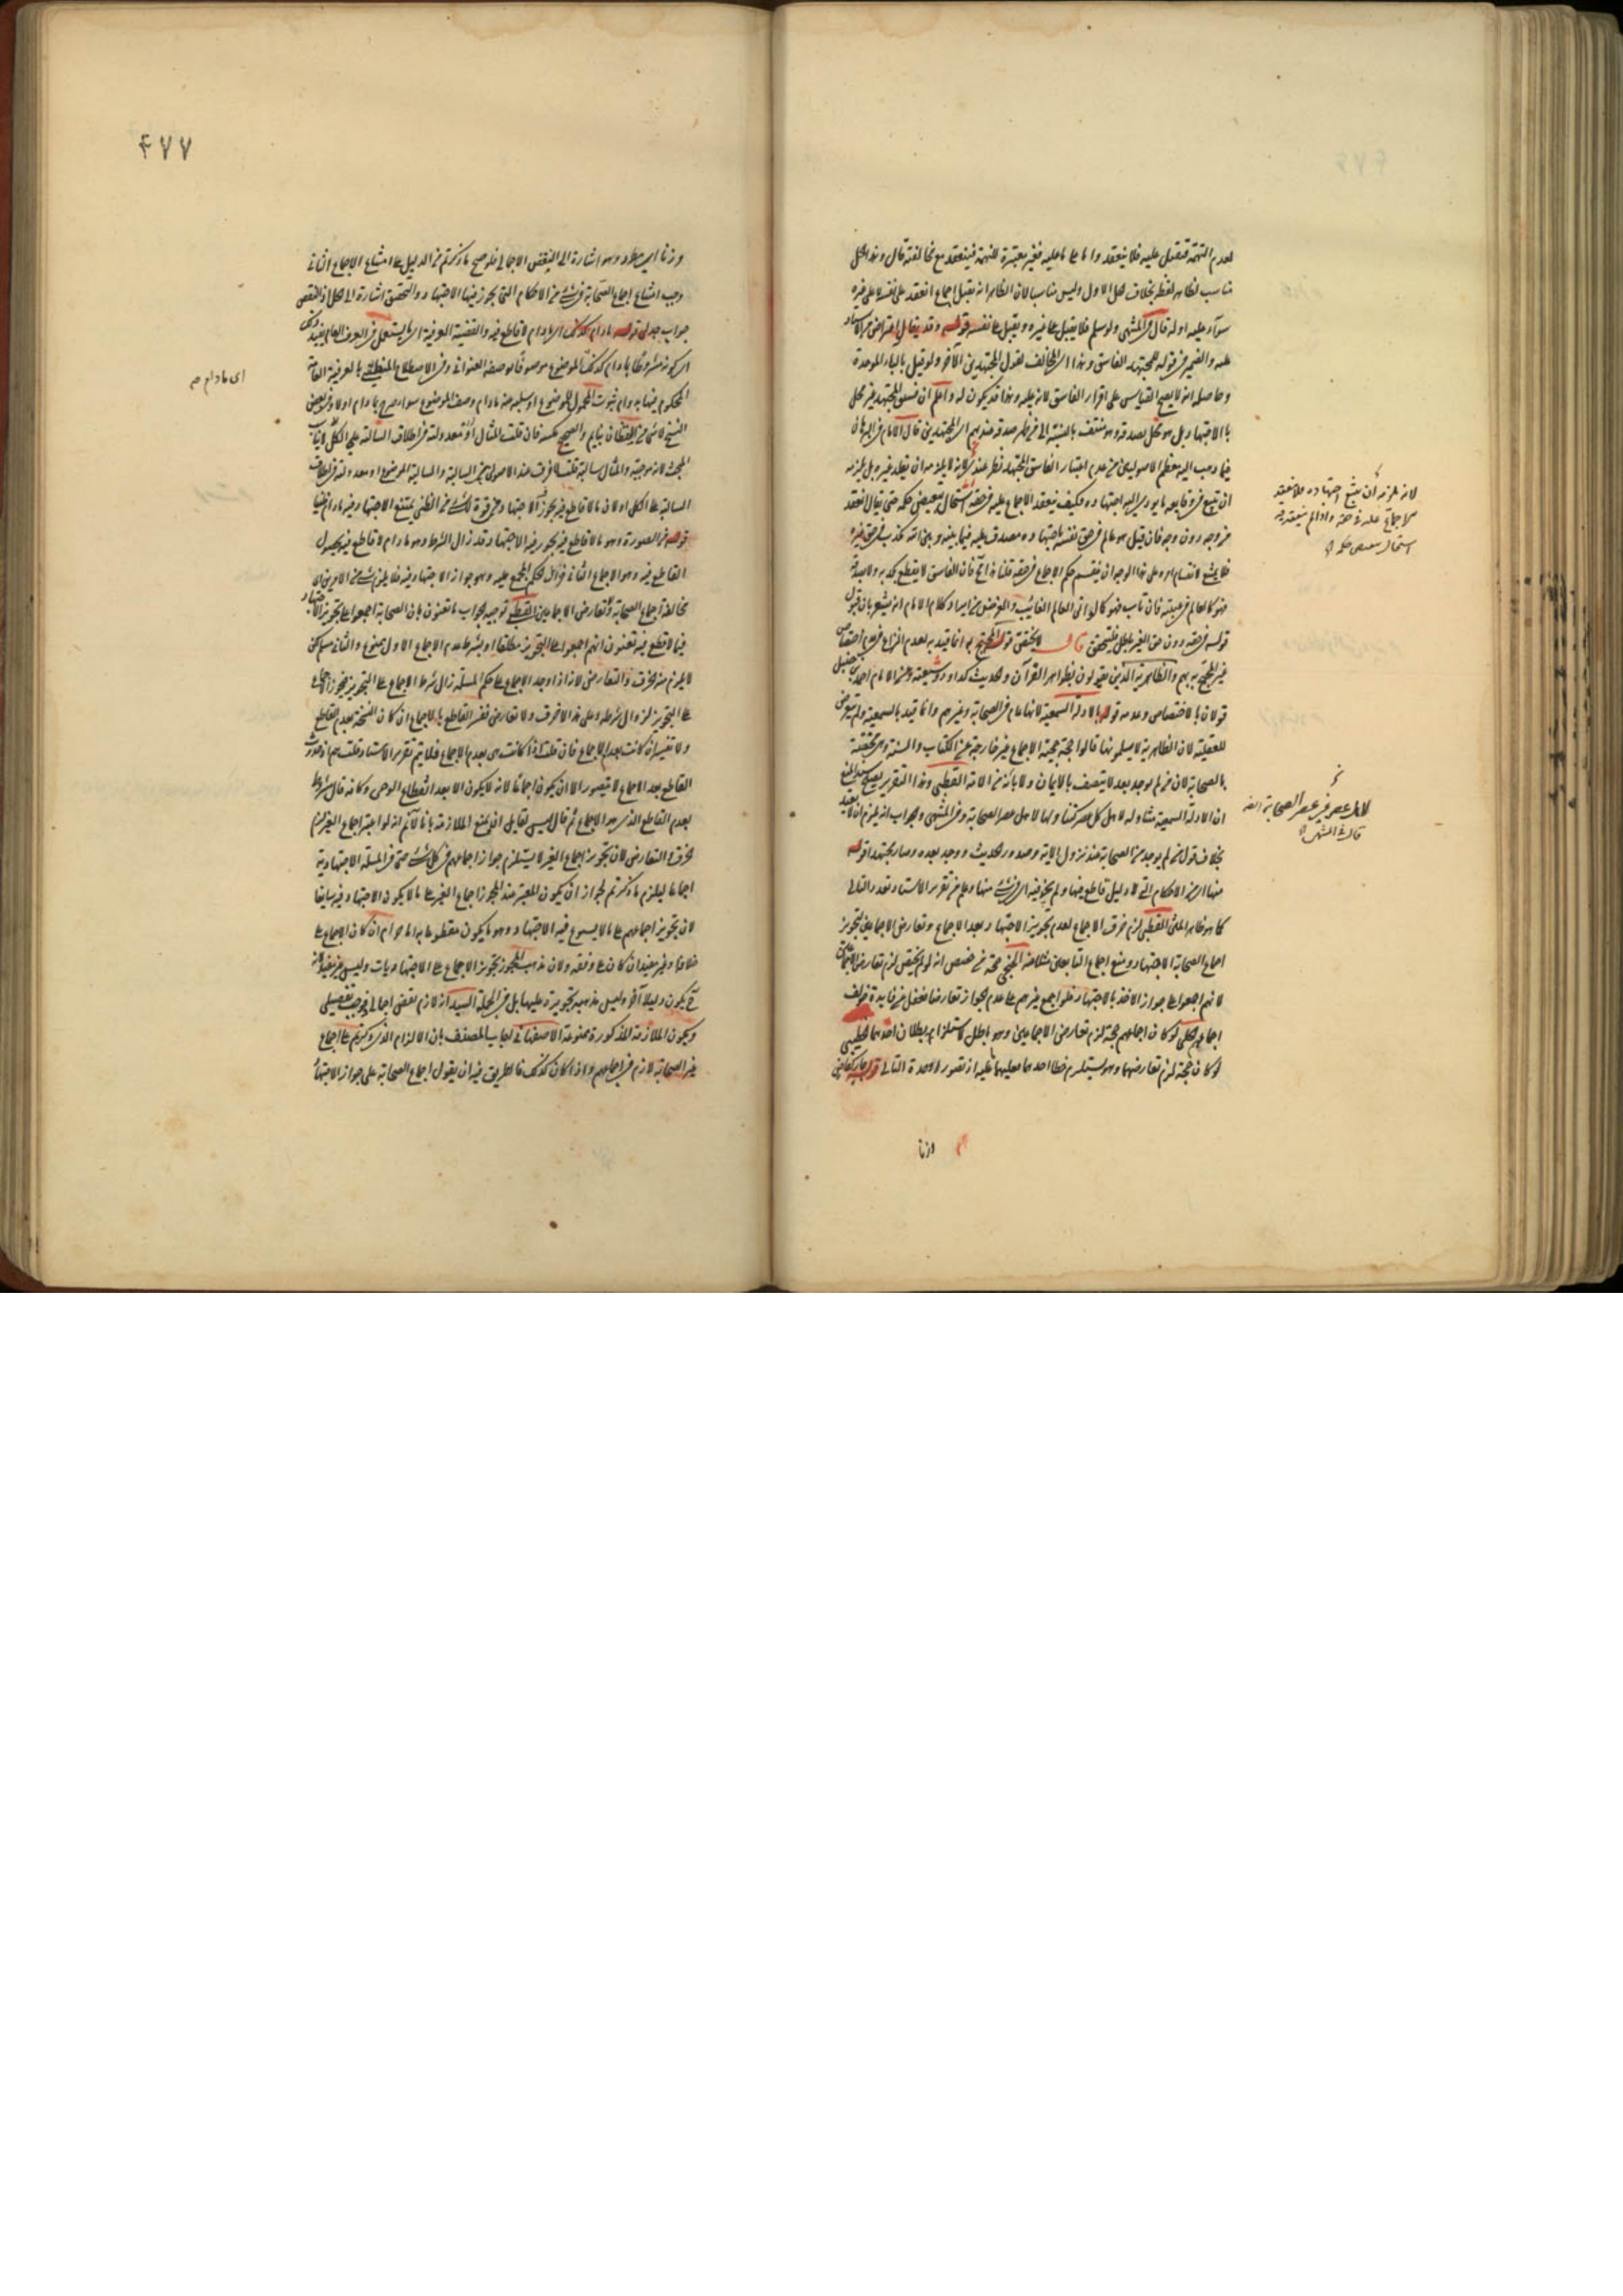 لعدم التهمة فتقبل عليه فلا ينعقد واما على ما عليه فغير معتبرة للتهمة فينعقد مع مخالفته قال وهذا الحل
مناسب لظاهر لفظه بخلاف الحل الاول وليس مناسبا لان الظاهر انه يقبل اجماع انعقد على نفسه لا على غيره
سواء عليه اوله قال في المنتهى ولو سلم فلا يقبل على غيره ويقبل على نفسه قوله وقد يقال اعتراض من الاستاد
عليه والضمير في قوله للمجتهد الفاسق وهذا اي المخالف لقول المجتهدين الآخر ولو قيل بالباء الموحدة
وحاصله انه لا يصح القياس على اقرار الفاسق لانه عليه وهذا قد يكون له واعلم ان فسق المجتهد غير مخل
بالاجتهاد بل هو مخل بصدقه وهو منتف بالنسبة الى من ظهر صدقه عندهم اي المجتهدين قال الامام في البرهان
فيما ذهب اليه معظم الاصوليين من عدم اعتبار الفاسق المجتهد نظر عندي لانه لا يلزمه ان يقلد غيره بل يلزمه
ان يتبع في وقايعه ما يؤدي اليه اجتهاده فكيف ينعقد الاجماع عليه في حقه واستحال تبعيض حكمه حتى يقال انعقد
من وجه دون وجه فان قيل هو عالم في حق نفسه باجتهاده مصدق عليه فيما بينه وبين الله مكذب في حق غيره
فلا يمتنع لانقسام امره على هذا الوجه ان ينقسم حكم الاجماع في حقه قلنا
فهو كالعالم في غيبته فان تاب فهو كما لو اتى العالم الغائب والغرض من ايراد كلام الامام انه يشعر بان قبول
قوله في حقه دون حق الغير باطل فليتحقق قال لا يختص قوله المحتج به انما قيد به لعدم النزاع في عدم اختصاص
غير المحتج به بهم والظاهرية الذين يقولون بظواهر القرآن والحديث كداود وشيعته وعن الامام احمد بن حنبل
قولان بالاختصاص وعدمه قوله بالادلة السمعية لانها عام في الصحابة وغيرهم وانما قيد بالسمعية ولم يتعرض
للعقلية لان الظاهرية لا يسلمونها قالوا حجة حجية الاجماع غير خارجة عن الكتاب والسنة وهي مختصة
بالصحابة لان من لم يوجد بعد لا يتصف بالايمان ولا بانه من الامة القطبي وهذا التقرير
ان الادلة السمعية متناولة لاهل كل عصر كتناولها لاهل عصر الصحابة وفي المنتهى والجواب انه يلزم ان لا يعتد
بخلاف قول من لم يوجد من الصحابة عند نزول الآية وصدور الحديث ووجد بعده وصار مجتهدا قوله
منها اي من الاحكام التي لا دليل قاطع فيها ولم يجز فيه اي في شيء منها وعلم من تقرير الاستاد تعدد التالي
كما هو ظاهر المتن القطبي لزم خرق الاجماع لعدم تجويز الاجتهاد بعد الاجماع وتعارض الاجماعين لتجويز
اجماع الصحابة الاجتهاد ومنع اجماع التابعين مثلا عنه الخنجي حجة من خصص انه لو لم يختص لزم تعارض الاجماعين
لانهم اجمعوا على جواز الاخذ بالاجتهاد فلو اجمع غيرهم على عدم الجواز تعارضا فغفل من فايدة خولف
اجماعهم الحلي لو كان اجماعهم حجة لزم تعارض الاجماعين وهو باطل لاستلزامه بطلان احدهما الخطيبي
لو كان حجة لزم تعارضهما وهو يستلزم خطا احدهما
وزنا
لانه يلزمه ان يتبع اجتهاده فلا ينعقد
الاجماع عليه في حقه واذا لم ينعقد فيه
استحال تبعيض حكمه
لاهل عصر غير عصر الصحابة
قاله في المنتهى
٤٧٧
وزنا وهو اشارة الى النقض الاجمالي فلو صح ما ذكرتم من الدليل على امتناع الاجماع الثاني
وجب امتناع اجماع الصحابة في شيء من الاحكام التي يجوز فيها الاجتهاد والتحقيق اشارة الى الحل اذ النقض
جواب جدلي قوله ما دام كذلك اي ما دام لا قاطع فيه والقضية العرفية اي ما يستعمل في العرف العام
اي كونه مشروطا بما دام كذلك الموضوع موصوفا بوصفه العنواني وفي الاصطلاح المنطقي بالعرفية العامة
المحكوم فيها بدوام ثبوت المحمول للموضوع او سلبه عنه ما دام وصف الموضوع سواء صرح بما دام اولا وفي بعض
النسخ لا شيء من اليقظان بنائم والصحيح عكسه فان قلت المثال
البحث لانه موجبة والمثال سالبة قلت لا فرق عند الاصولي بين السالبة والسالبة الموضوع او معدولة
السالبة على الكل او لان ما لا قاطع فيه يجوز الاجتهاد في قوة لا شيء من الظني يمتنع الاجتهاد فيه ما دام ظنيا
قوله في الصورة وهو ما لا قاطع فيه يجوز فيه الاجتهاد وقد زال الشرط وهو ما دام لا قاطع فيه بحصول
القاطع فيه وهو الاجماع الثاني فزال الحكم المجمع عليه وهو جواز الاجتهاد فيه فلا يلزم شيء من الامرين اي
مخالفة اجماع الصحابة وتعارض الاجماعين القطبي توجيه الجواب ما تعنون بان الصحابة اجمعوا على تجويز الاجتهاد
فيما لا قطع فيه تعنون انهم اجمعوا على التجويز مطلقا او بشرط عدم الاجماع الاول ممنوع والثاني مسلم لكن
لا يلزم منه الخرق والتعارض لانه اذا وجد الاجماع على حكم المسئلة زال شرط الاجماع على التجويز
على التجويز لزوال شرطه وعلى هذا لا خرق ولا تعارض ففسر القاطع بالاجماع ان كان النسخة بعدم القاطع
ولا تغيير ان كانت بعدم الاجماع فان قلت اذا كانت هي بعدم الاجماع فلا يتم تقرير الاستاد قلت
القاطع بعد الاجماع لا يتصور الا ان يكون اجماعا لانه لا يكون الا بعد انقطاع الوحي وكانه قال بشرط
بعدم القاطع الذي هو الاجماع ثم قال ليس لقايل ان يمنع الملازمة بانا لا نم انه لو اعتبر اجماع الغير لزم
الخرق او التعارض لان تجويز اجماع الغير لا يستلزم جواز اجماعهم في كل شيء حتى في المسئلة الاجتهادية
اجماعا ليلزم ما ذكرتم لجواز ان يكون المعتبر عند المجوز اجماع الغير على ما لا يكون الاجتهاد فيه سايغا
لان تجويز اجماعهم على ما لا يسوغ فيه الاجتهاد وهو ما يكون مقطوعا به اما حرام ان كان الاجماع على
خلافه او غير مفيد ان كان على وفقه ولان مذهب المجوز تجويز الاجماع على الاجتهاديات وليس غير مفيد
ح يكون دليلا آخر وليس مذهبه تجويزه عليها بل في الجملة السيد انه لازم نقض اجمالي
ويكون الملازمة المذكورة ممنوعة الاصفهاني اجاب المصنف بان الالزام الذي ذكرتم على اجماع
غير الصحابة لازم في اجماعهم واذا كان كذلك فالطريق فيه ان يقول اجماع الصحابة على جواز الاجتهاد
اى ما دام